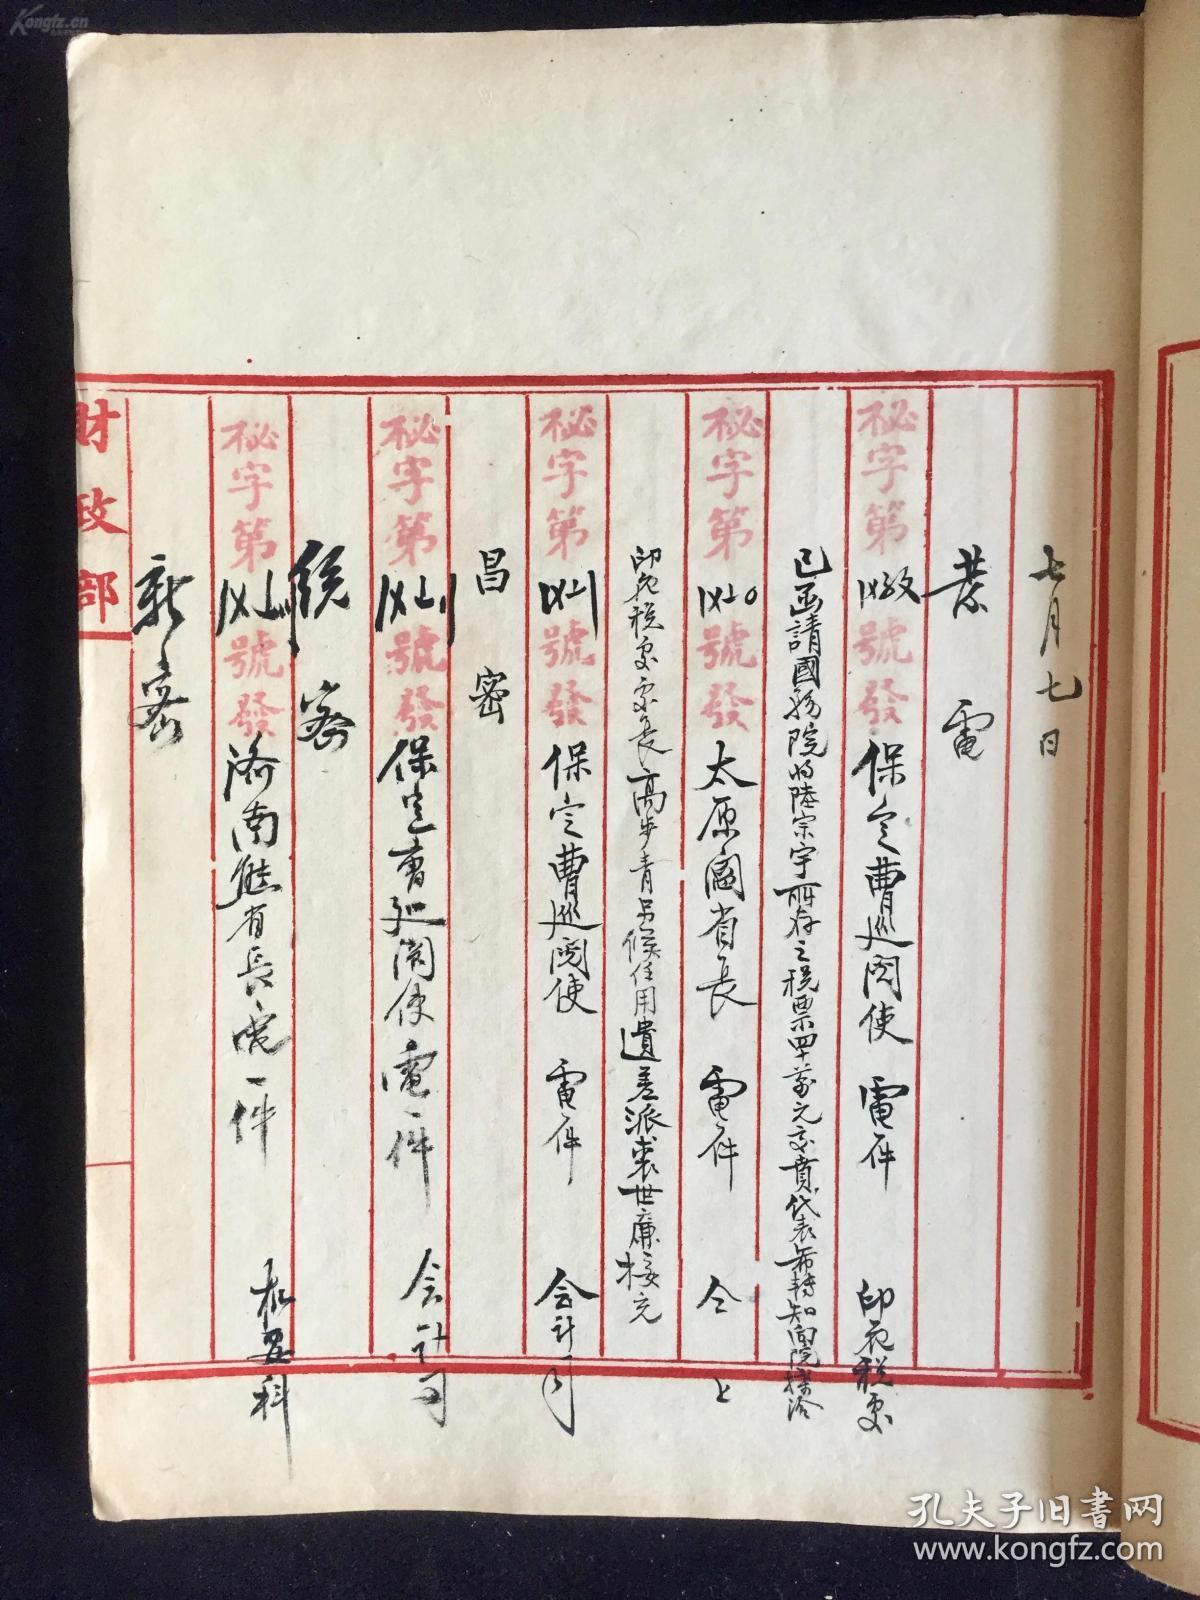 七月七日
業電
秘字第號發 保定曹巡閱使 電一件 印花稅處
已函請國務院將陸宗宇所存之稅票四十萬元交賁代表希轉知向院接洽
秘字第號發 太原閻省長 電一件 仝上
印花稅處處長高步青另候任用遺差派裘世廉接充
秘字第號發 保定曹巡閱使 電一件 会計司
昌密
秘字第號發 保定曹巡閱使 電一件 会計司
統密
秘字第號發 濟南熊省長 電一件 机要科
新密
財政部
孔夫子旧书网
www.kongfz.com
Kongfz.cn